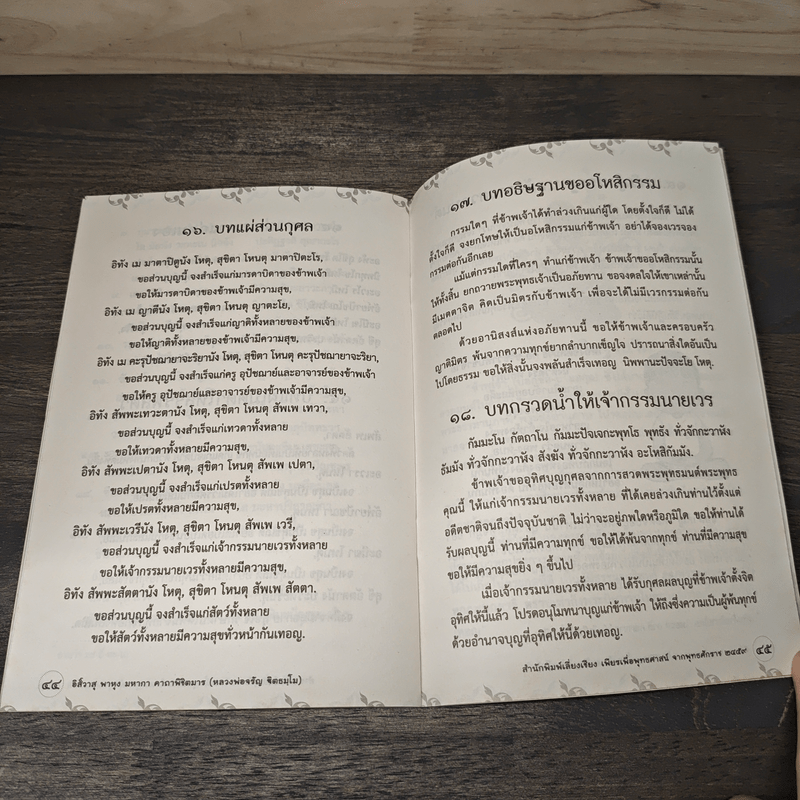 ๑๖. บทแผ่ส่วนกุศล
อิทัง เม มาตาปิตูนัง โหตุ, สุขิตา โหนตุ มาตาปิตะโร,
ขอส่วนบุญนี้ จงสำเร็จแก่มารดาบิดาของข้าพเจ้า
ขอให้มารดาบิดาของข้าพเจ้ามีความสุข,
อิทัง เม ญาตีนัง โหตุ, สุขิตา โหนตุ ญาตะโย,
ขอส่วนบุญนี้ จงสำเร็จแก่ญาติทั้งหลายของข้าพเจ้า
ขอให้ญาติทั้งหลายของข้าพเจ้ามีความสุข,
อิทัง เม คะรุปัชฌายาจะริยานัง โหตุ, สุขิตา โหนตุ คะรุปัชฌายาจะริยา,
ขอส่วนบุญนี้ จงสำเร็จแก่ครู อุปัชฌาย์และอาจารย์ของข้าพเจ้า
ขอให้ครู อุปัชฌาย์และอาจารย์ของข้าพเจ้ามีความสุข,
อิทัง สัพพะเทวะตานัง โหตุ, สุขิตา โหนตุ สัพเพ เทวา,
ขอส่วนบุญนี้ จงสำเร็จแก่เทวดาทั้งหลาย
ขอให้เทวดาทั้งหลายมีความสุข,
อิทัง สัพพะเปตานัง โหตุ, สุขิตา โหนตุ สัพเพ เปตา,
ขอส่วนบุญนี้ จงสำเร็จแก่เปรตทั้งหลาย
ขอให้เปรตทั้งหลายมีความสุข,
อิทัง สัพพะเวรีนัง โหตุ, สุขิตา โหนตุ สัพเพ เวรี,
ขอส่วนบุญนี้ จงสำเร็จแก่เจ้ากรรมนายเวรทั้งหลาย
ขอให้เจ้ากรรมนายเวรทั้งหลายมีความสุข,
อิทัง สัพพะสัตตานัง โหตุ, สุขิตา โหนตุ สัพเพ สัตตา.
ขอส่วนบุญนี้ จงสำเร็จแก่สัตว์ทั้งหลาย
ขอให้สัตว์ทั้งหลายมีความสุขทั่วหน้ากันเทอญ.
๔๔ อิสิ์วาสุ พาหุง มหากา คาถาพิชิตมาร (หลวงพ่อจรัญ ฐิตธมฺโม)
๑๗. บทอธิษฐานขออโหสิกรรม
กรรมใดๆ ที่ข้าพเจ้าได้ทำล่วงเกินแก่ผู้ใด โดยตั้งใจก็ดี ไม่ได้
ตั้งใจก็ดี จงยกโทษให้เป็นอโหสิกรรมแก่ข้าพเจ้า อย่าได้จองเวรจอง
กรรมต่อกันอีกเลย
แม้แต่กรรมใดที่ใครๆ ทำแก่ข้าพเจ้า ข้าพเจ้าขออโหสิกรรมนั้น
ให้ทั้งสิ้น ยกถวายพระพุทธเจ้าเป็นอภัยทาน ขอจงดลใจให้เขาเหล่านั้น
มีเมตตาจิต คิดเป็นมิตรกับข้าพเจ้า เพื่อจะได้ไม่มีเวรกรรมต่อกัน
ตลอดไป
ด้วยอานิสงส์แห่งอภัยทานนี้ ขอให้ข้าพเจ้าและครอบครัว
ญาติมิตร พ้นจากความทุกข์ยากลำบากเข็ญใจ ปรารถนาสิ่งใดอันเป็น
ไปโดยธรรม ขอให้สิ่งนั้นจงพลันสำเร็จเทอญ นิพพานะปัจจะโย โหตุ.
๑๘. บทกรวดน้ำให้เจ้ากรรมนายเวร
กัมมะโน กัตถาโน กัมมะปัจเจกะพุทโธ พุทธัง ทั่วจักกะวาหัง
ธัมมัง ทั่วจักกะวาหัง สังฆัง ทั่วจักกะวาหัง อะโหสิกัมมัง.
ข้าพเจ้าขออุทิศบุญกุศลจากการสวดพระพุทธมนต์พระพุทธ
คุณนี้ ให้แก่เจ้ากรรมนายเวรทั้งหลาย ที่ได้เคยล่วงเกินท่านไว้ตั้งแต่
อดีตชาติจนถึงปัจจุบันชาติ ไม่ว่าจะอยู่ภพใดหรือภูมิใด ขอให้ท่านได้
รับผลบุญนี้ ท่านที่มีความทุกข์ ขอให้ได้พ้นจากทุกข์ ท่านที่มีความสุข
ขอให้มีความสุขยิ่ง ๆ ขึ้นไป
เมื่อเจ้ากรรมนายเวรทั้งหลาย ได้รับกุศลผลบุญที่ข้าพเจ้าตั้งจิต
อุทิศให้นี้แล้ว โปรดอนุโมทนาบุญแก่ข้าพเจ้า ให้ถึงซึ่งความเป็นผู้พ้นทุกข์
ด้วยอำนาจบุญที่อุทิศให้นี้ด้วยเทอญ.
สำนักพิมพ์เลี่ยงเชียง เพียรเพื่อพุทธศาสน์ จากพุทธศักราช ๒๔๕๙ ๔๕